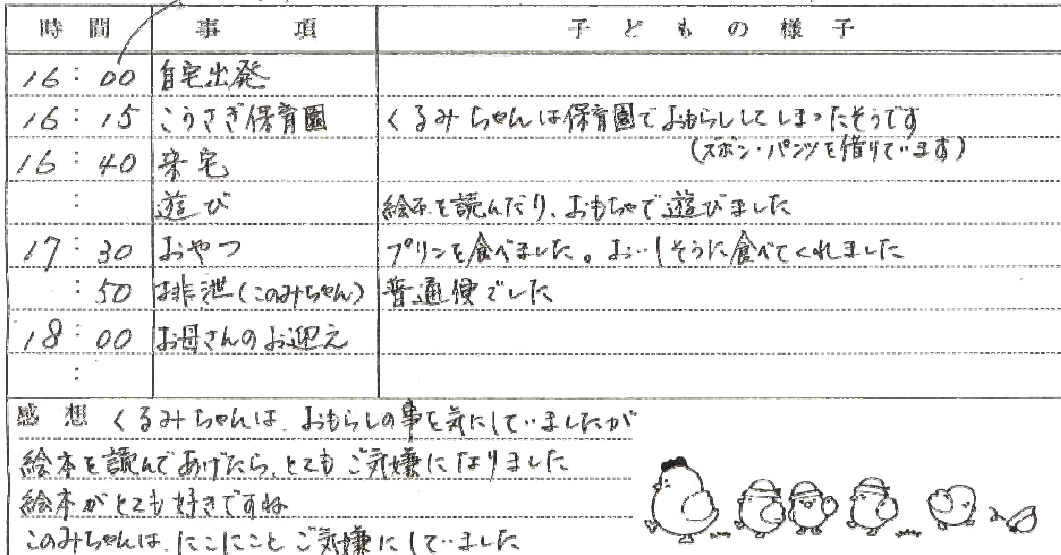 時間 事項 子どもの様子
16:00 自宅出発
16:15 こうさぎ保育園 くるみちゃんは保育園でおもらししてしまったそうです
(ズボン・パンツを借りています)
16:40 来宅
: 遊び 絵本を読んだり、おもちゃで遊びました
17:30 おやつ プリンを食べました。おいしそうに食べてくれました
:50 排泄(このみちゃん) 普通便でした
18:00 お母さんのお迎え
:
感想 くるみちゃんは、おもらしの事を気にしていましたが
絵本を読んであげたら、とてもご気嫌になりました
絵本がとても好きですね
このみちゃんは、にこにことご気嫌にしていました